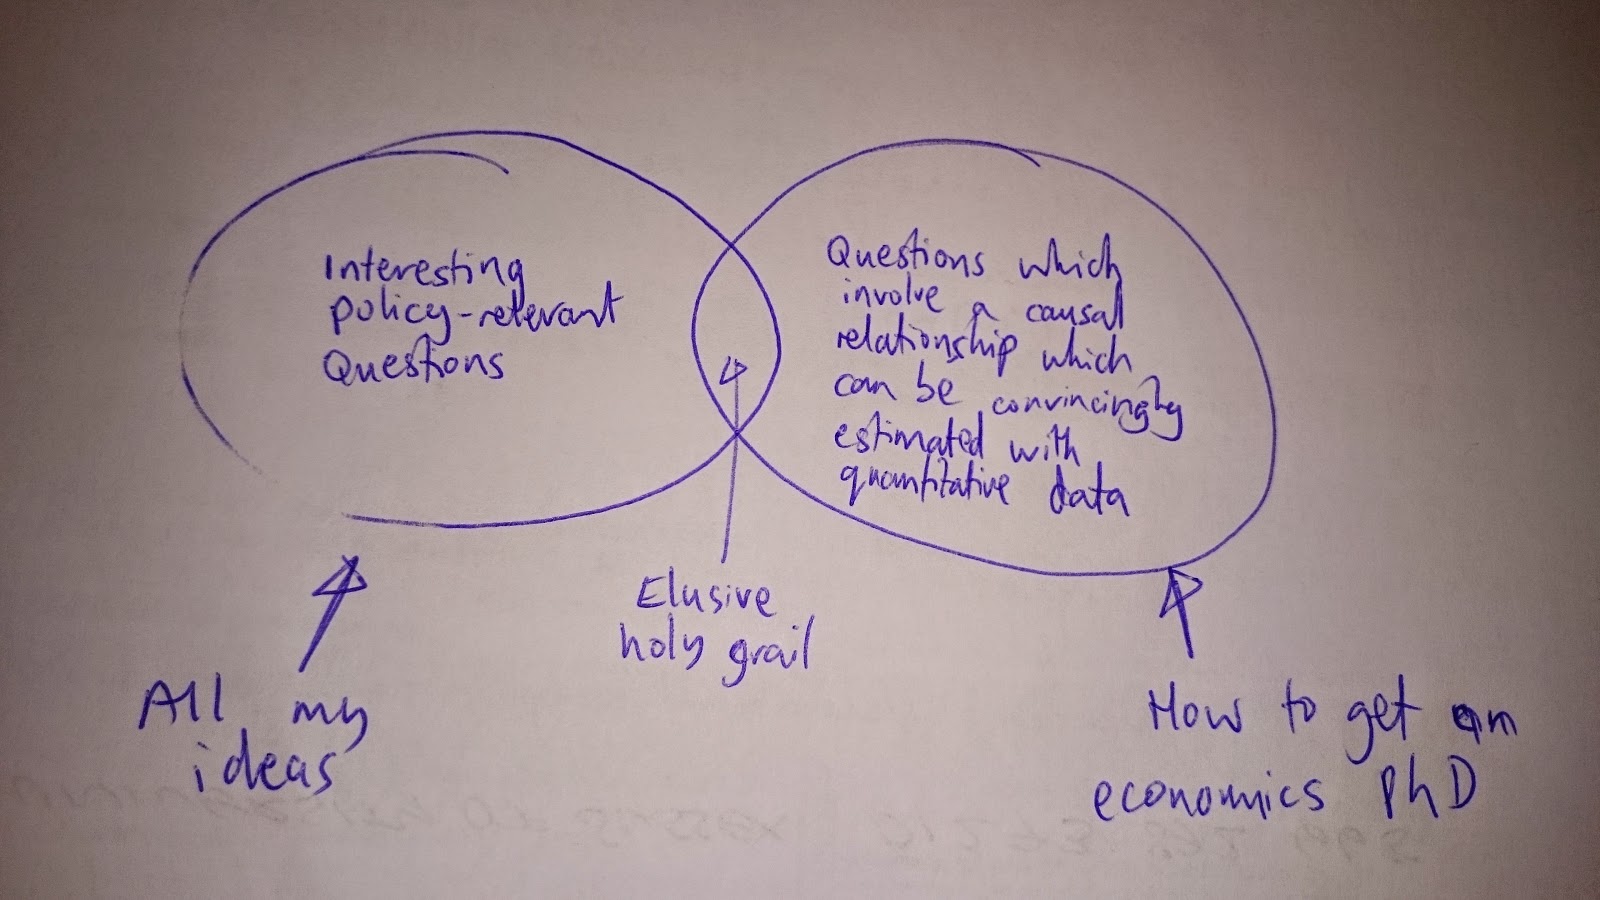 Interesting
policy-relevant
Questions
Questions which
involve a causal
relationship which
can be convincingly
estimated with
quantitative data
Elusive
holy grail
All my
ideas
How to get an
economics PhD